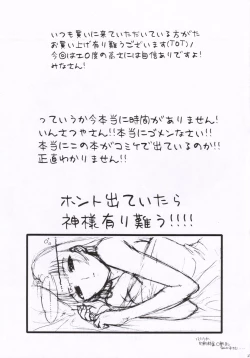 いつも買いに来ていただいている方がた
お買い上げ有り難うございます(TOT)ﾉ
今回はエロ度の高さには自信ありですよ!
みなさん!
っていうか今本当に時間がありません!
いんさつやさん!!本当にゴメンなさい!!
本当にこの本がコミケで出ているのか!!
正直わかりません!!
ホント出ていたら
神様有り難う!!!!